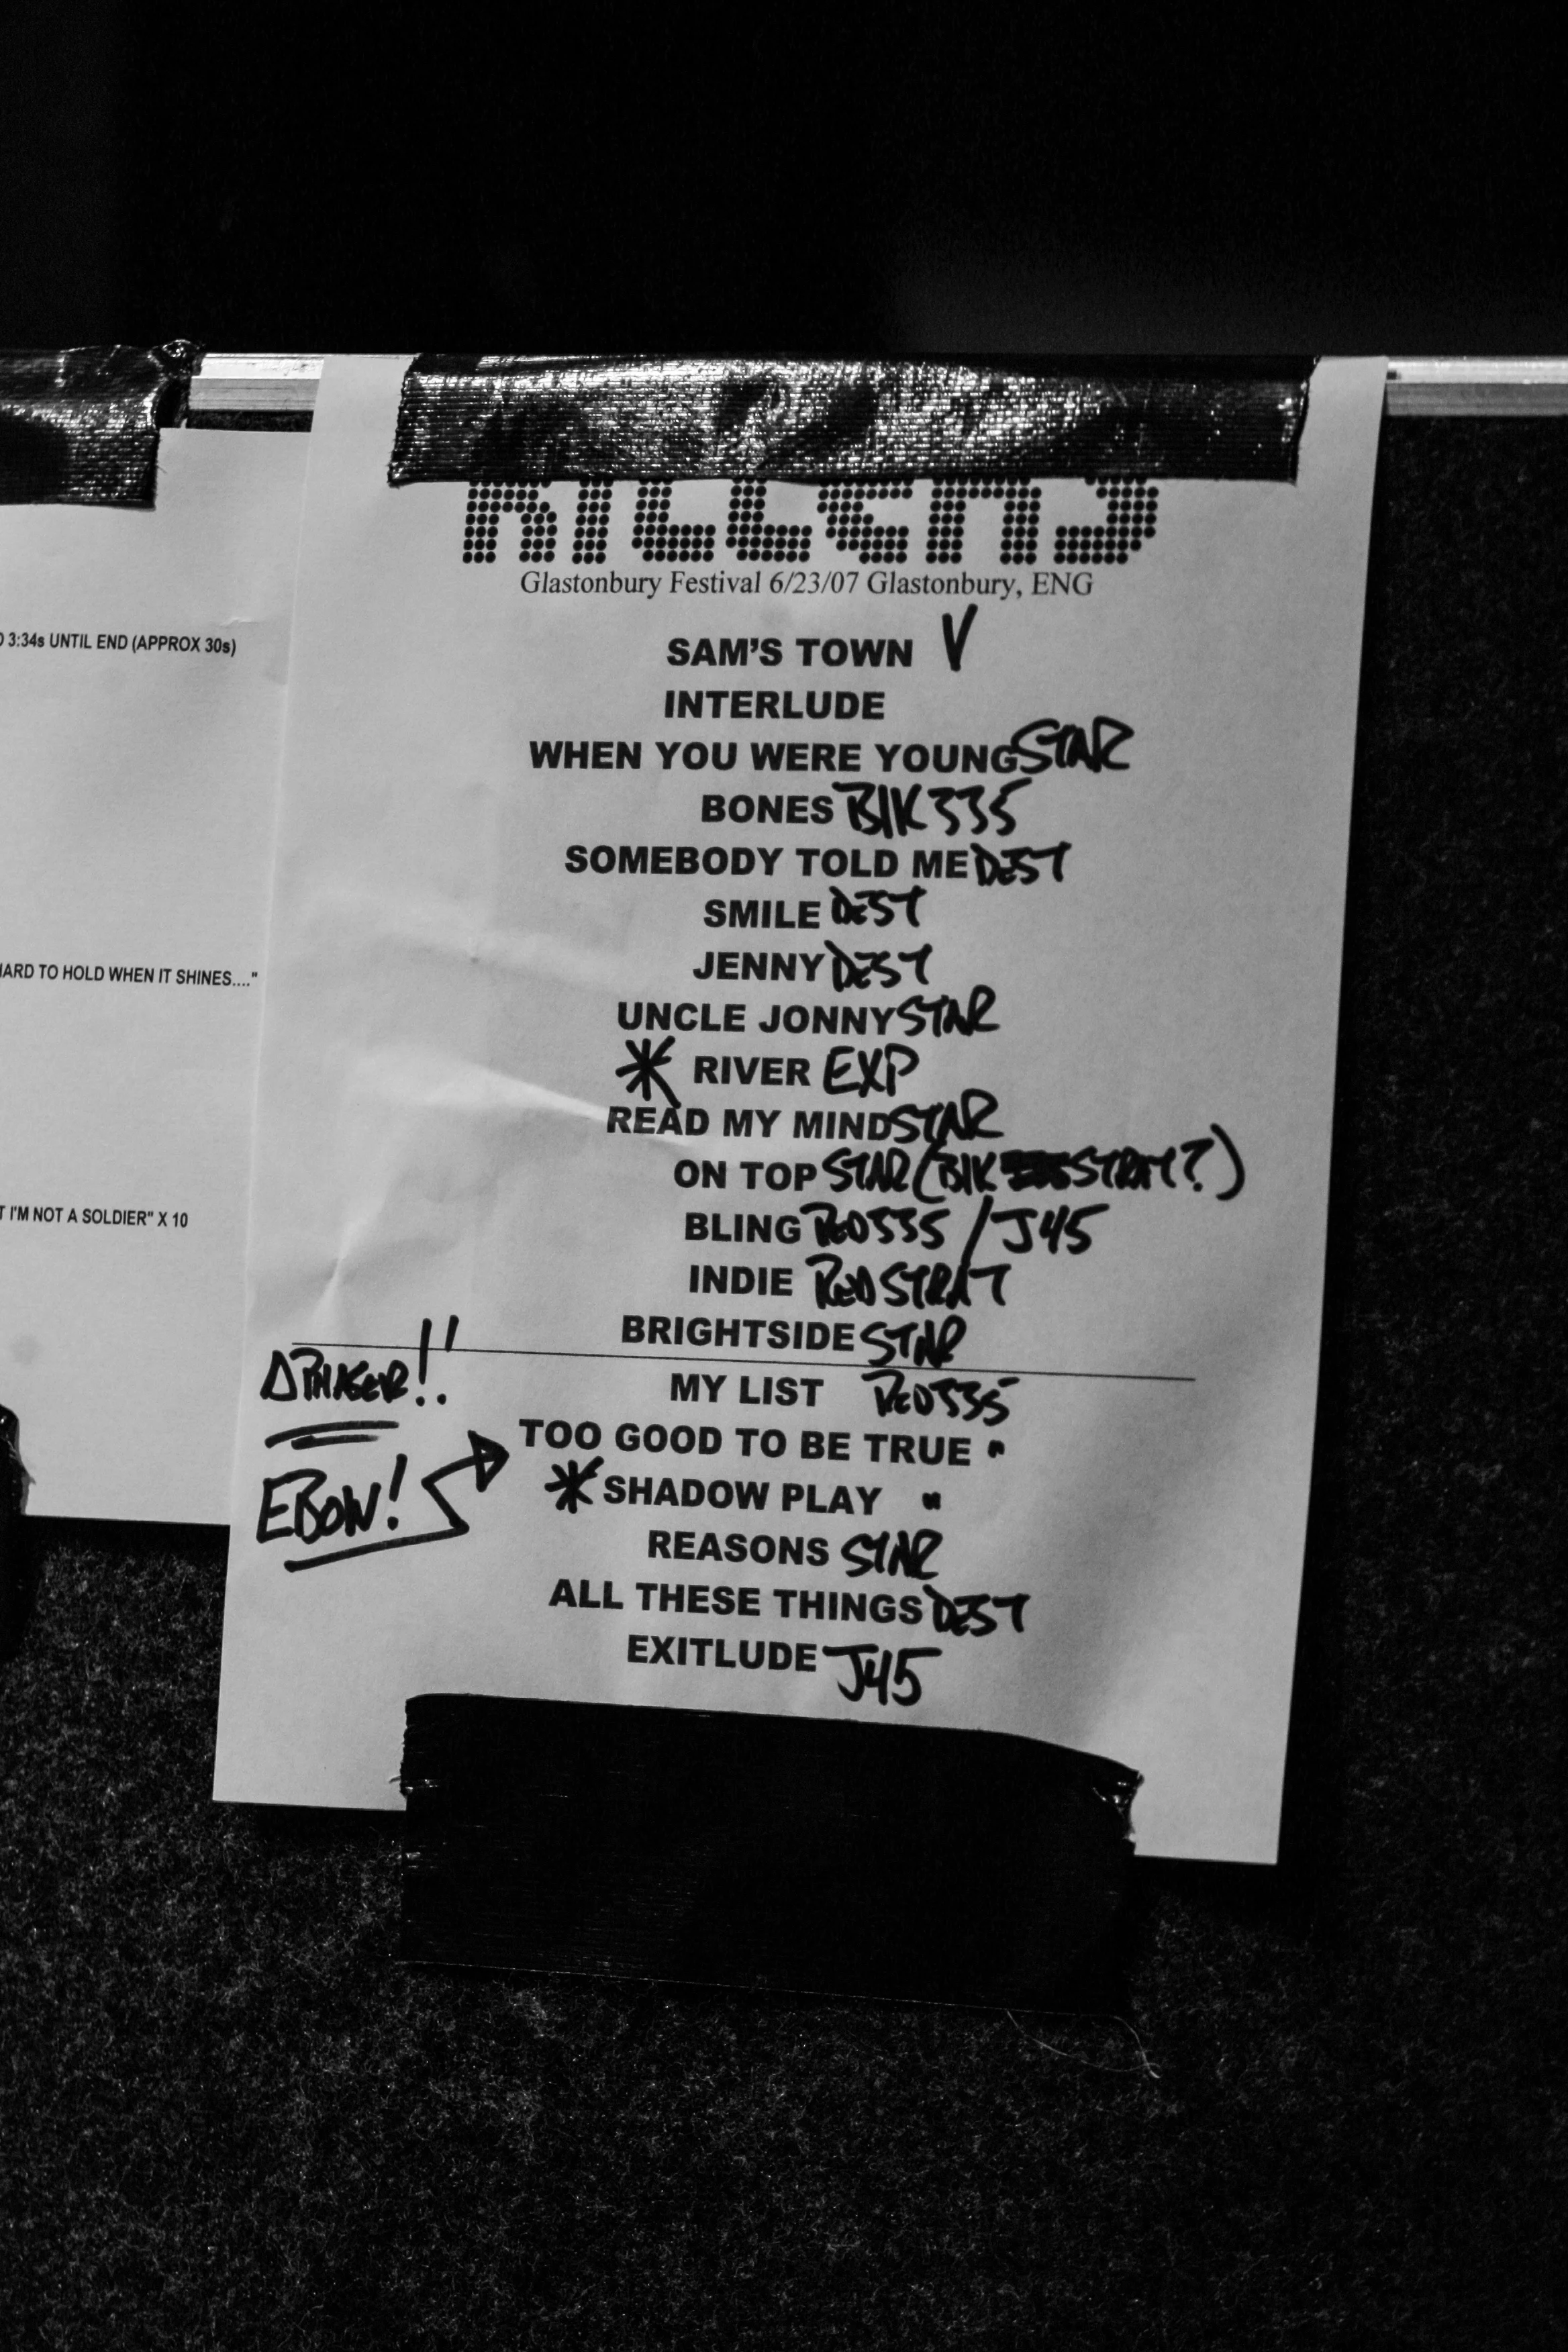 KILLERS
Glastonbury Festival 6/23/07 Glastonbury, ENG
SAM'S TOWN V
INTERLUDE
WHEN YOU WERE YOUNG STAR
BONES BLK 335
SOMEBODY TOLD ME DEST
SMILE DEST
JENNY DEST
UNCLE JONNY STAR
* RIVER EXP
READ MY MIND STAR
ON TOP STAR (BLK STRAT?)
BLING RED 335 / J45
INDIE RED STRAT
BRIGHTSIDE STAR
MY LIST RED 335
TOO GOOD TO BE TRUE "
* SHADOW PLAY "
REASONS STAR
ALL THESE THINGS DEST
EXITLUDE J45
Δ PHASER!!
EBOW!
3:34s UNTIL END (APPROX 30s)
HARD TO HOLD WHEN IT SHINES...."
I'M NOT A SOLDIER" X 10